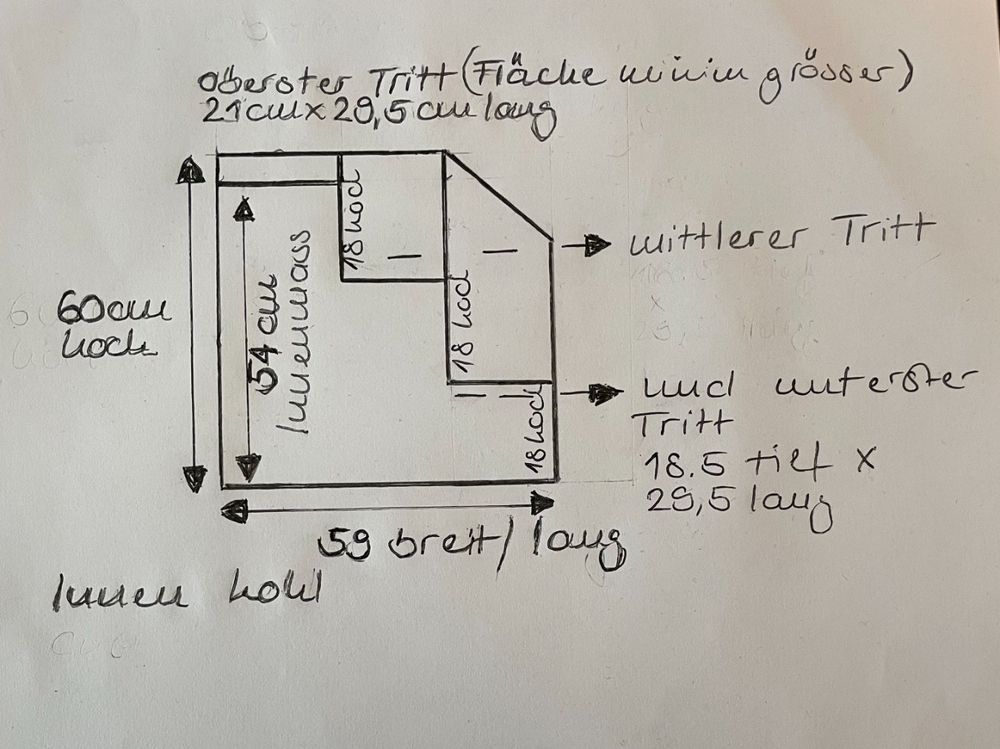 Oberster Tritt (Fläche minim grösser)
21cm x 29,5 cm lang
18 hoch
mittlerer Tritt
18 hoch
60cm
hoch
54 cm
Innenmass
und unterster
Tritt
18 hoch
18.5 tief x
29,5 lang
59 breit/lang
Innen hohl